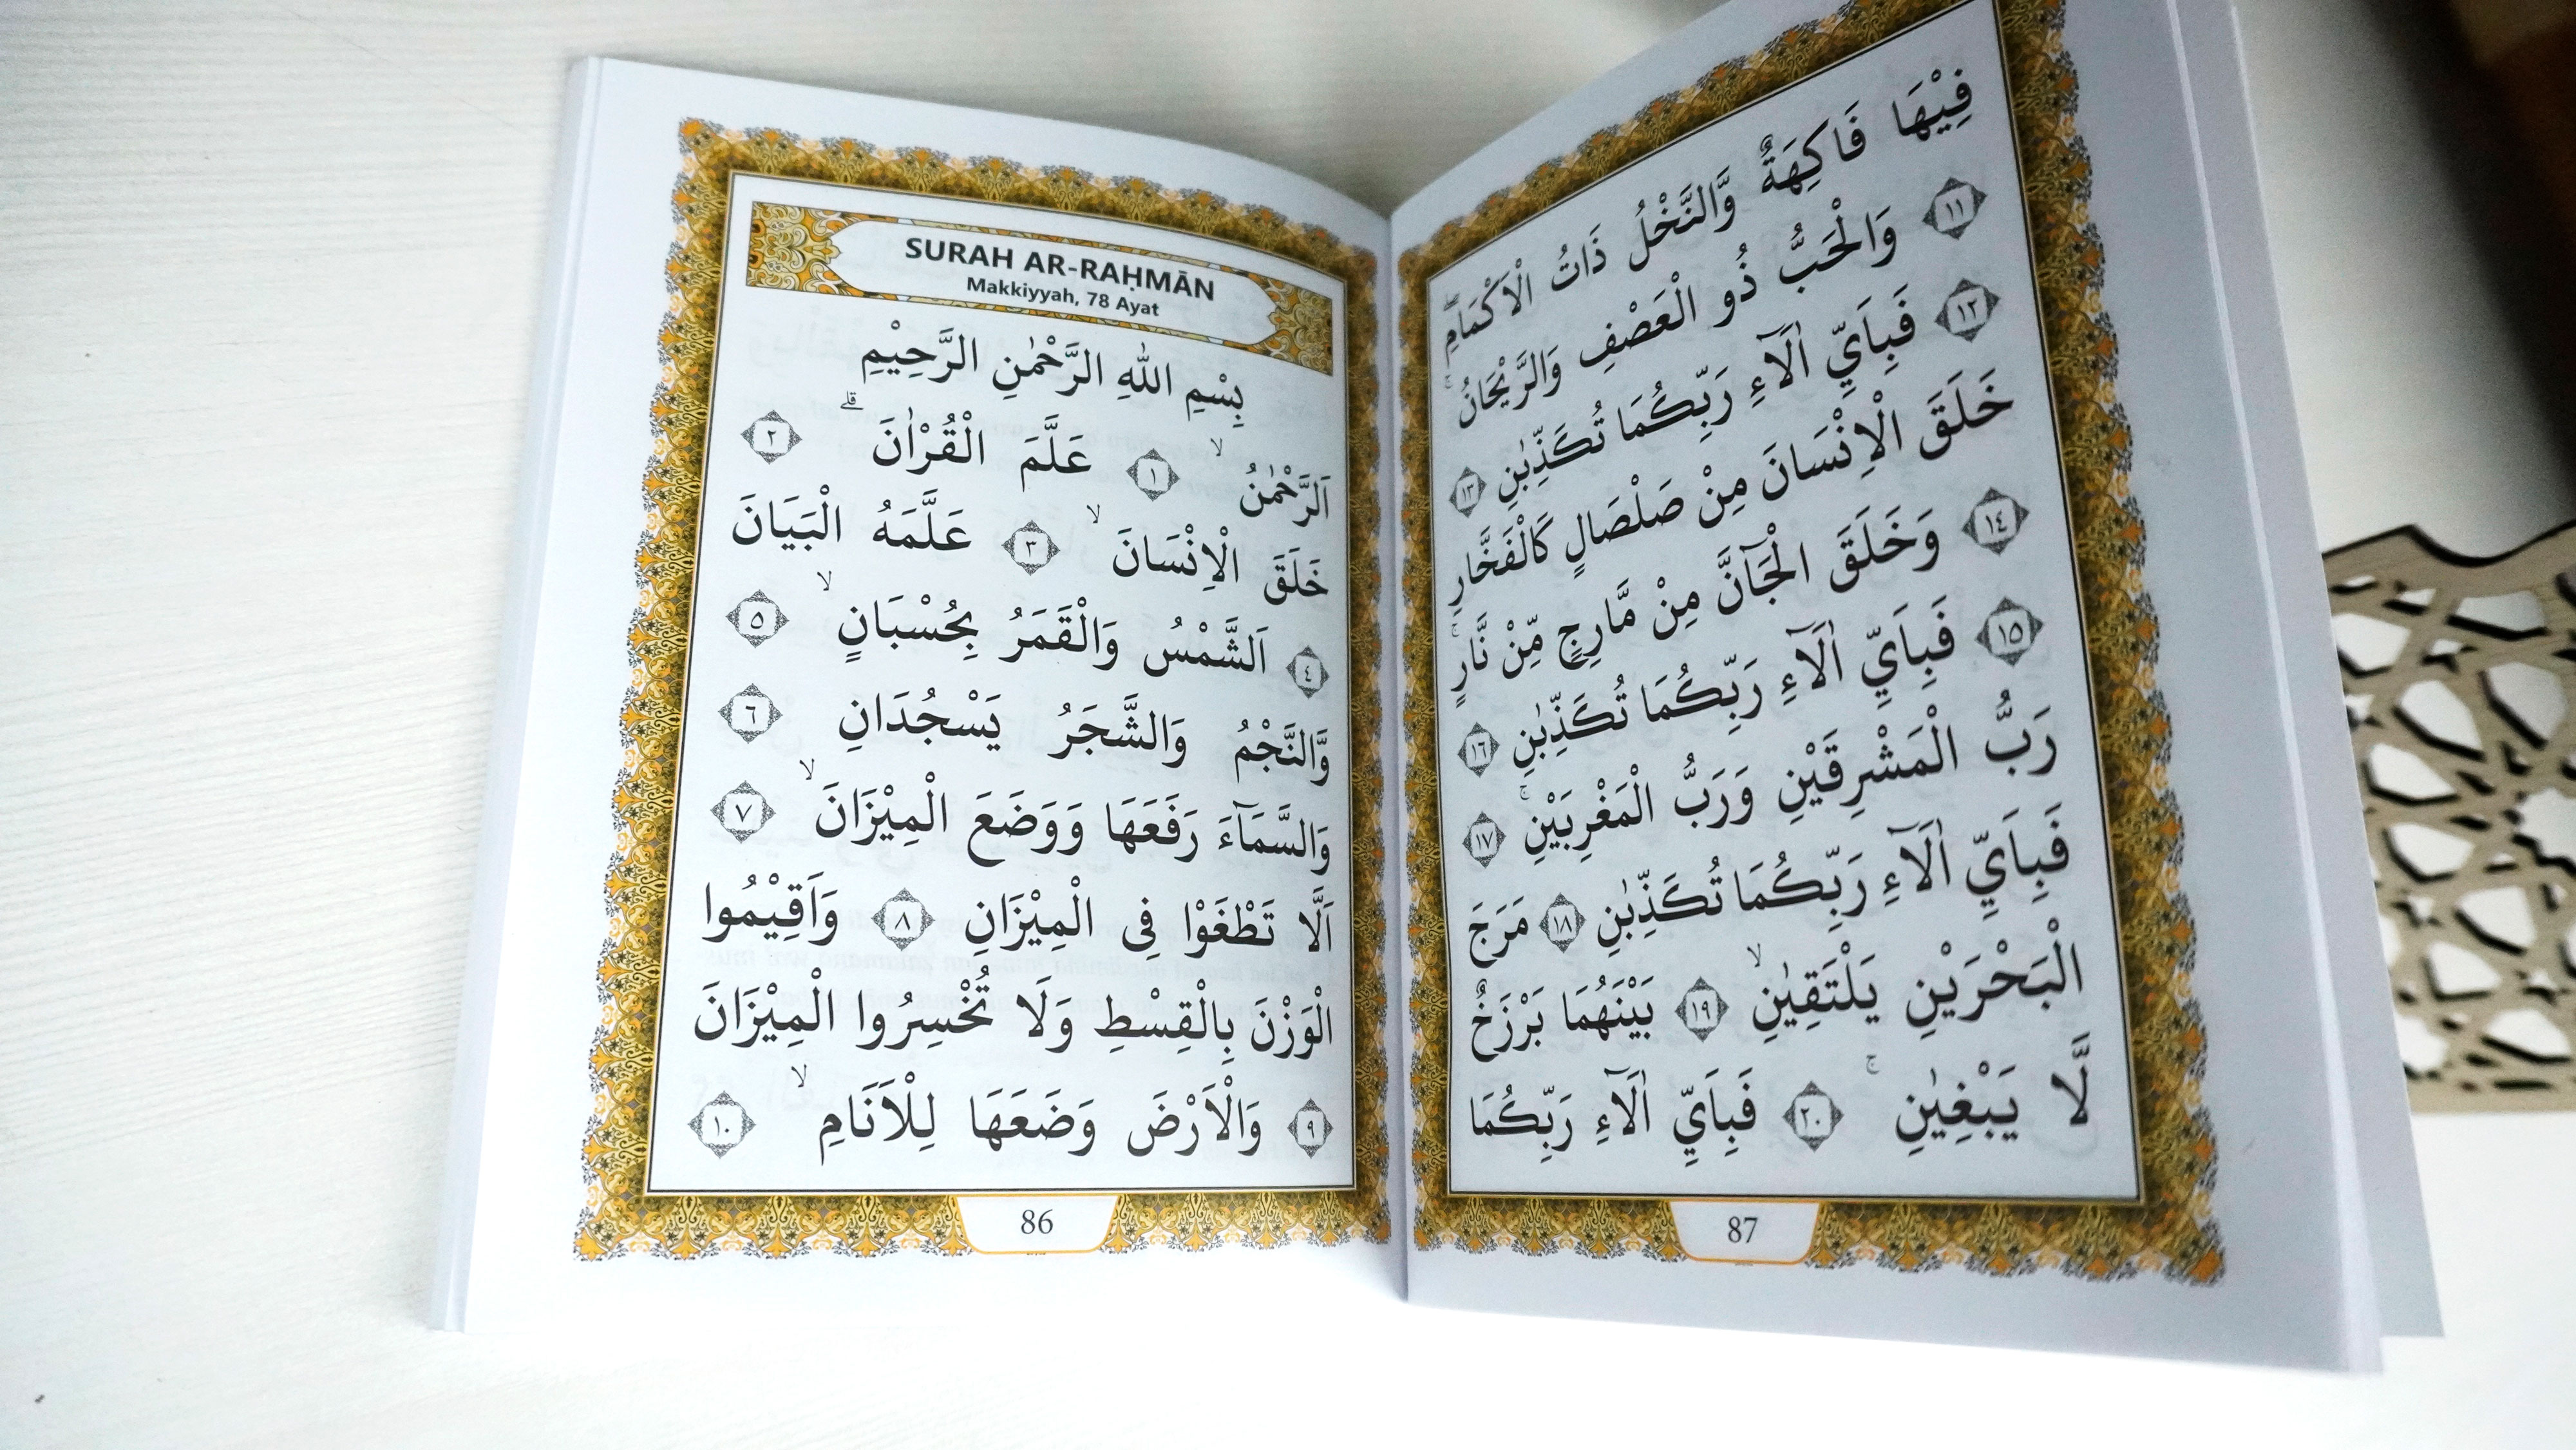 SURAH AR-RAḤMĀN
Makkiyyah, 78 Ayat
بِسْمِ اللّٰهِ الرَّحْمٰنِ الرَّحِيْمِ
اَلرَّحْمٰنُۙ ١ عَلَّمَ الْقُرْاٰنَۗ ٢
خَلَقَ الْاِنْسَانَۙ ٣ عَلَّمَهُ الْبَيَانَ
٤ اَلشَّمْسُ وَالْقَمَرُ بِحُسْبَانٍۙ ٥
وَّالنَّجْمُ وَالشَّجَرُ يَسْجُدَانِ ٦
وَالسَّمَاۤءَ رَفَعَهَا وَوَضَعَ الْمِيْزَانَۙ ٧
اَلَّا تَطْغَوْا فِى الْمِيْزَانِ ٨ وَاَقِيْمُوا
الْوَزْنَ بِالْقِسْطِ وَلَا تُخْسِرُوا الْمِيْزَانَ
٩ وَالْاَرْضَ وَضَعَهَا لِلْاَنَامِۙ ١٠
86
فِيْهَا فَاكِهَةٌ وَّالنَّخْلُ ذَاتُ الْاَكْمَامِۖ
١١ وَالْحَبُّ ذُو الْعَصْفِ وَالرَّيْحَانُۚ
١٢ فَبِاَيِّ اٰلَاۤءِ رَبِّكُمَا تُكَذِّبٰنِ ١٣
خَلَقَ الْاِنْسَانَ مِنْ صَلْصَالٍ كَالْفَخَّارِ
١٤ وَخَلَقَ الْجَاۤنَّ مِنْ مَّارِجٍ مِّنْ نَّارٍۚ
١٥ فَبِاَيِّ اٰلَاۤءِ رَبِّكُمَا تُكَذِّبٰنِ ١٦
رَبُّ الْمَشْرِقَيْنِ وَرَبُّ الْمَغْرِبَيْنِۚ ١٧
فَبِاَيِّ اٰلَاۤءِ رَبِّكُمَا تُكَذِّبٰنِ ١٨ مَرَجَ
الْبَحْرَيْنِ يَلْتَقِيٰنِۙ ١٩ بَيْنَهُمَا بَرْزَخٌ
لَّا يَبْغِيٰنِۚ ٢٠ فَبِاَيِّ اٰلَاۤءِ رَبِّكُمَا
87